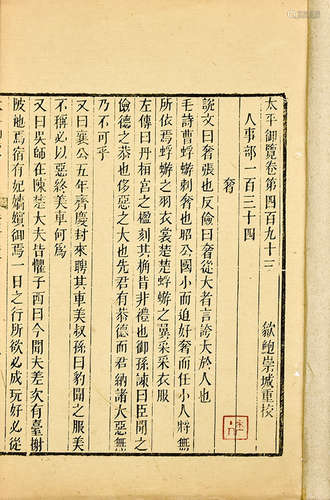 太平御覽卷第四百九十三
歙鮑崇城重校
人事部一百三十四
奢
說文曰奢張也反儉曰奢從大者言誇大於人也
毛詩曹蜉蝣刺奢也昭公國小而迫好奢而任小人將無
所依焉蜉蝣之羽衣裳楚楚蜉蝣之翼采采衣服
左傳曰丹桓宮之楹刻其桷皆非禮也御孫諫曰臣聞之
儉德之恭也侈惡之大也先君有恭德而君納諸大惡無
乃不可乎
又曰襄公五年齊慶封來聘其車美叔孫曰豹聞之服美
不稱必以惡終美車何爲
又曰吳師在陳楚大夫皆懼子西曰今聞夫差次有臺榭
陂池焉宿有妃嬙嬪御焉一日之行所欲必成玩好必從